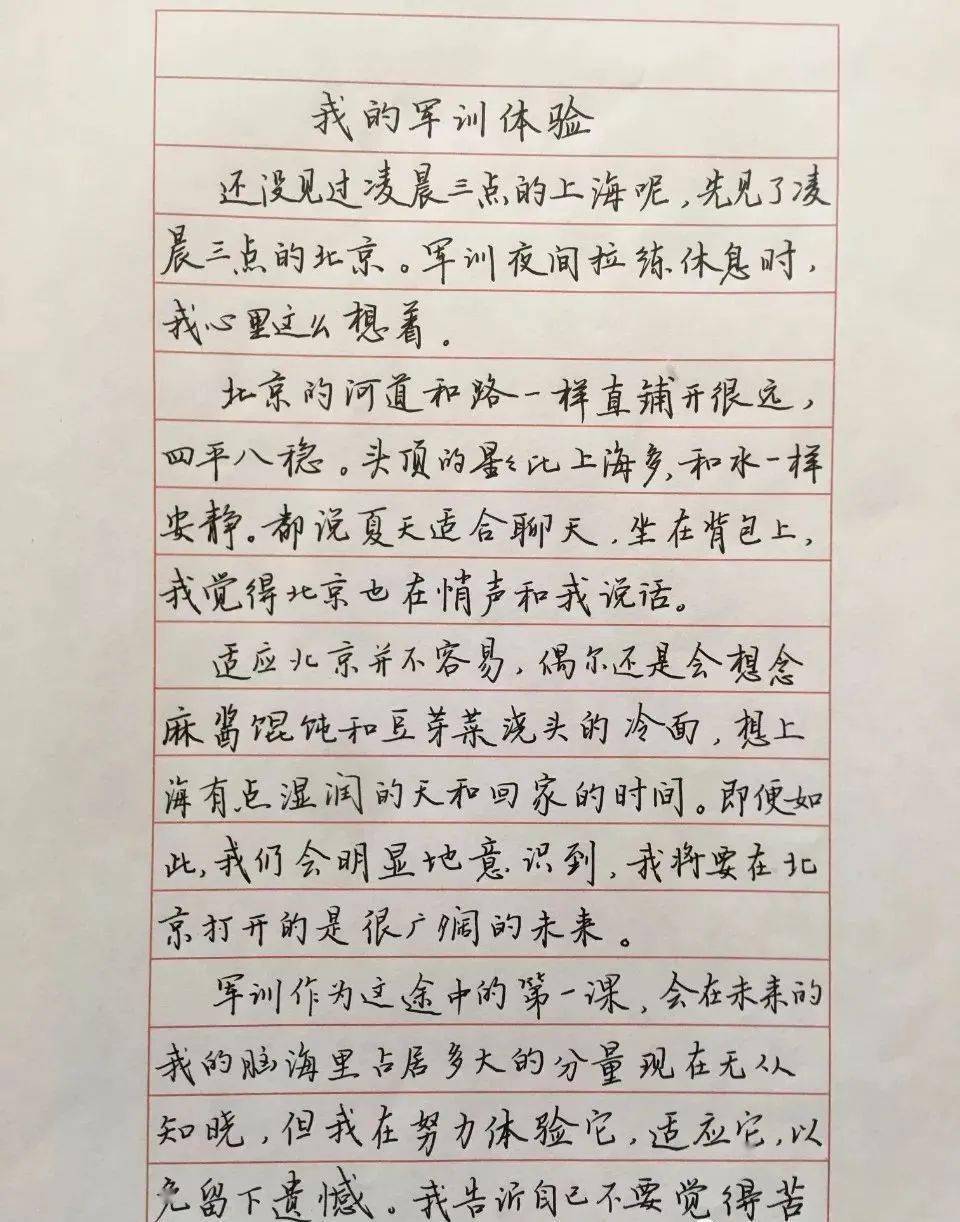 我的军训体验
还没见过凌晨三点的上海呢，先见了凌
晨三点的北京。军训夜间拉练休息时，
我心里这么想着。
北京的河道和路一样直铺开很远，
四平八稳。头顶的影比上海多，和水一样
安静。都说夏天适合聊天，坐在背包上，
我觉得北京也在悄声和我说话。
适应北京并不容易，偶尔还是会想念
麻酱馄饨和豆芽菜浇头的冷面，想上
海有点湿润的天和回家的时间。即便如
此，我们会明显地意识到，我将要在北
京打开的是很广阔的未来。
军训作为这途中的第一课，会在未来的
我的脑海里占居多大的分量现在无从
知晓，但我在努力体验它，适应它，以
免留下遗憾。我告诉自己不要觉得苦